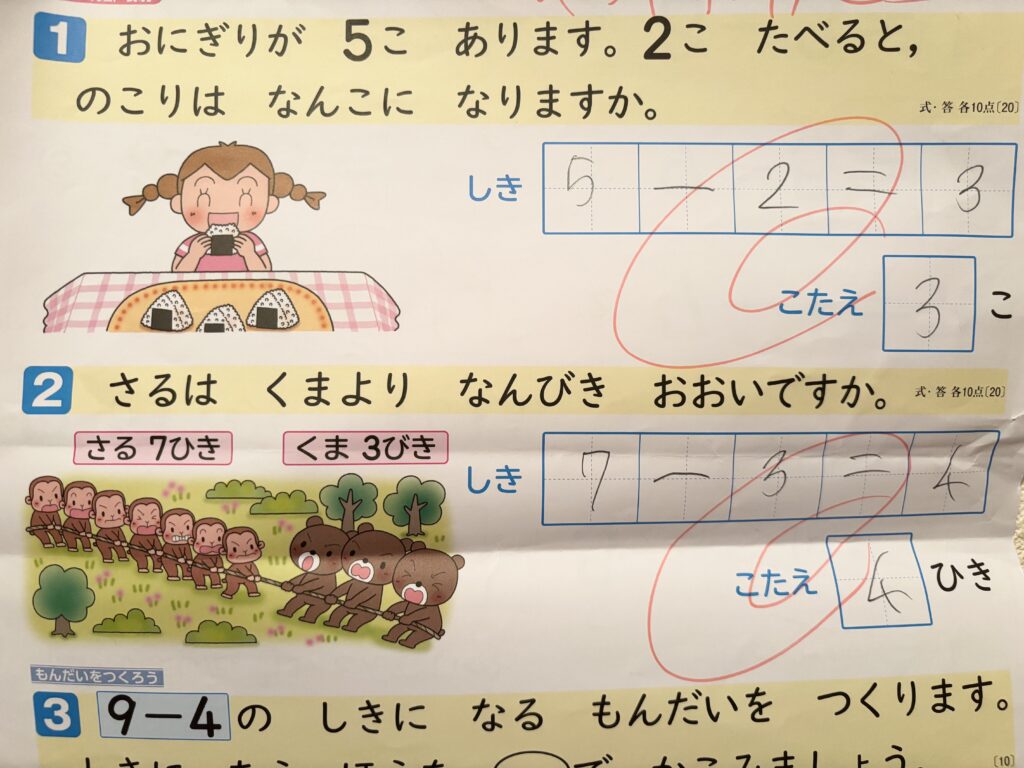 1 おにぎりが 5こ あります。2こ たべると,
のこりは なんこに なりますか。
式・答 各10点〔20〕
しき 5 − 2 = 3
こたえ 3 こ
2 さるは くまより なんびき おおいですか。
式・答 各10点〔20〕
さる 7ひき くま 3びき
しき 7 − 3 = 4
こたえ 4 ひき
もんだいをつくろう
3 9−4の しきに なる もんだいを つくります。
〔10〕